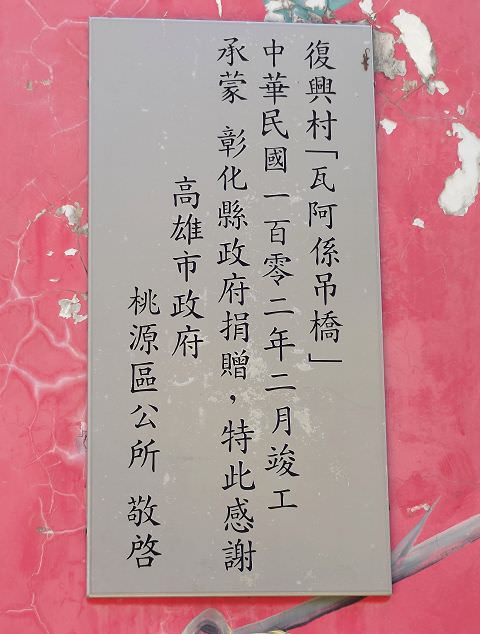 復興村「瓦阿係吊橋」
中華民國一百零二年二月竣工
承蒙 彰化縣政府捐贈，特此感謝
高雄市政府
桃源區公所 敬啓